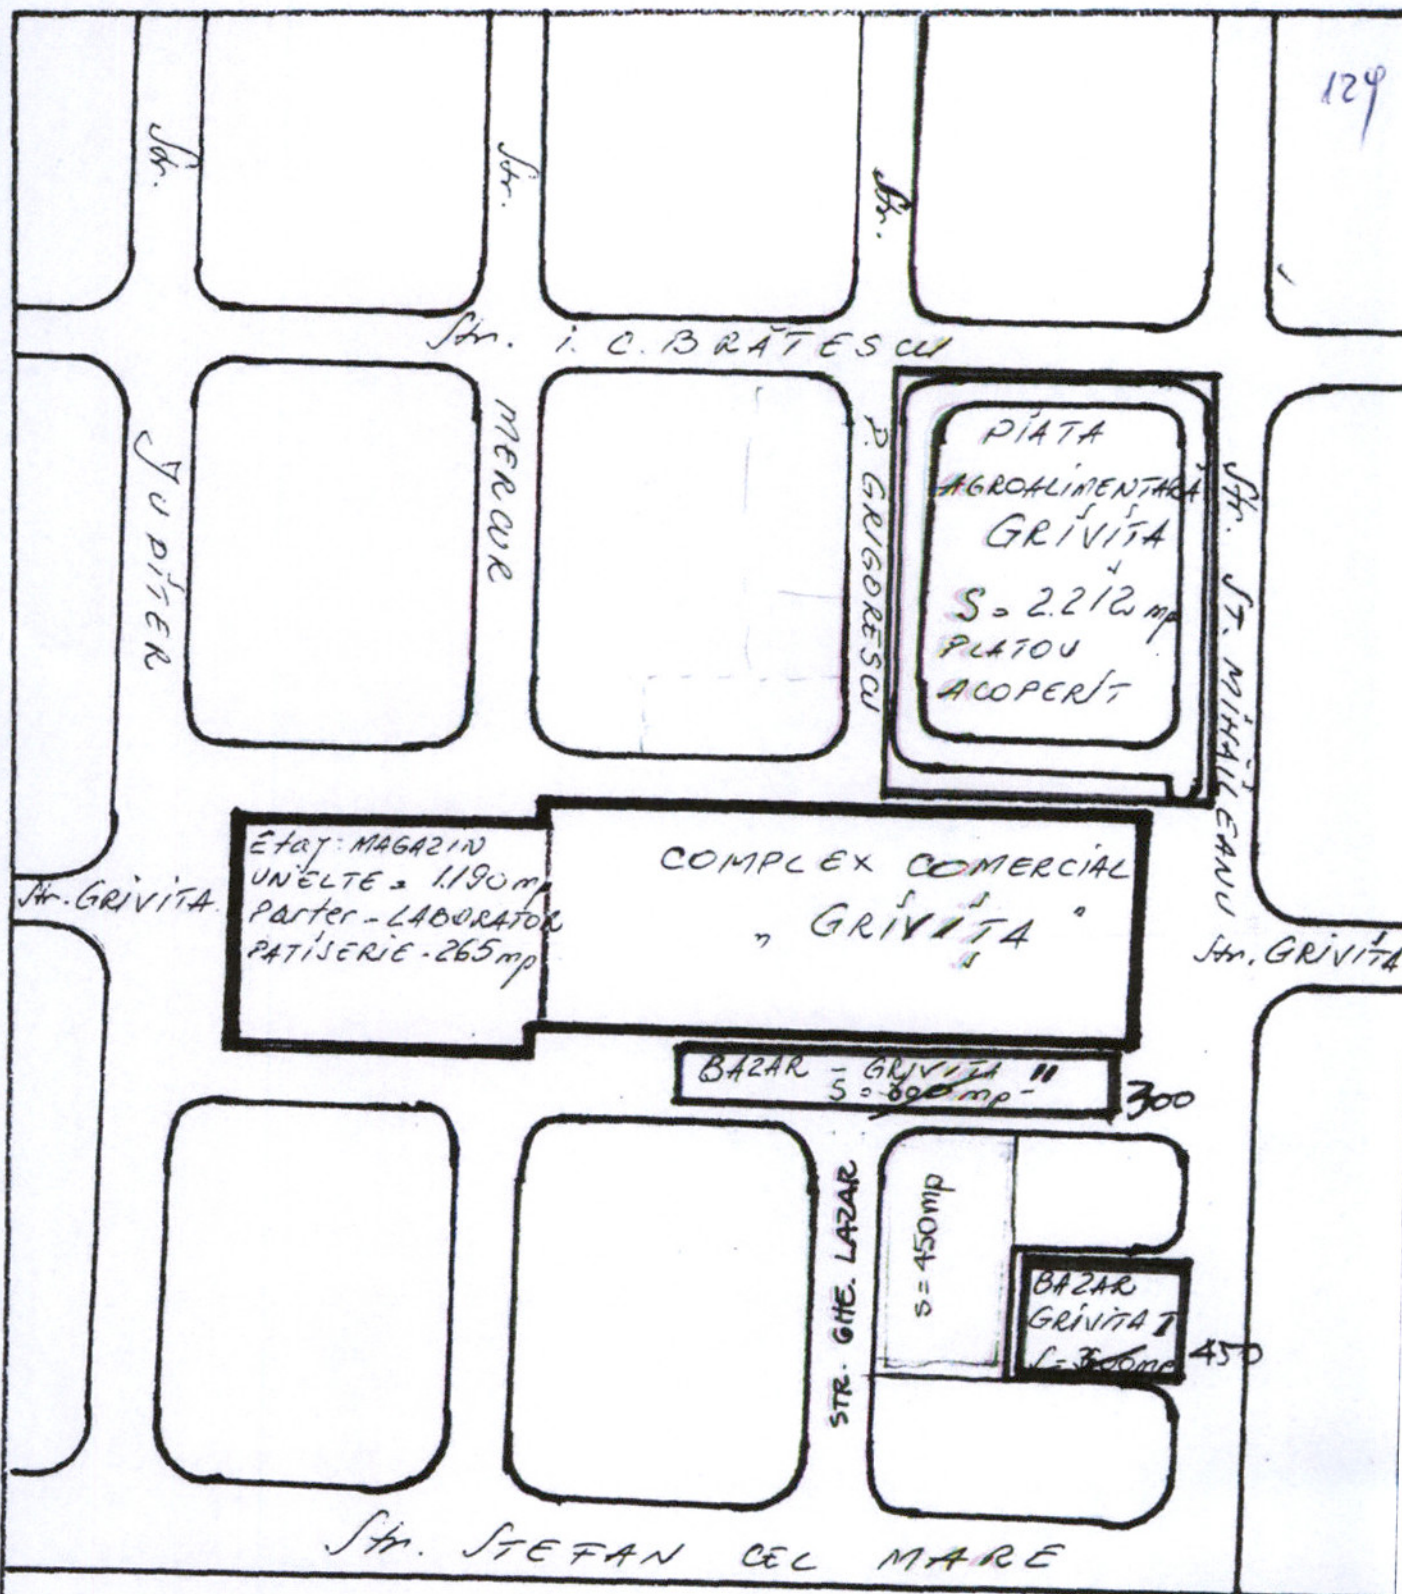 129
Str.
Str.
Str.
Str. I. C. BRĂTESCU
JUPITER
MERCUR
P. GRIGORESCU
PIATA
AGROALIMENTARĂ
GRIVIȚA
S = 2.212 mp
PLATOU
ACOPERIT
Str. ST. MIHĂILEANU
Etaj: MAGAZIN
UNELTE = 1.190 mp
Parter - LABORATOR
PATISERIE - 265 mp
COMPLEX COMERCIAL
„ GRIVIȚA "
Str. GRIVITA
Str. GRIVITA
BAZAR - GRIVITA II
S = 600 mp -
300
STR. GHE. LAZAR
S = 450 mp
BAZAR
GRIVITA I
S = 300 mp
450
Str. STEFAN CEL MARE